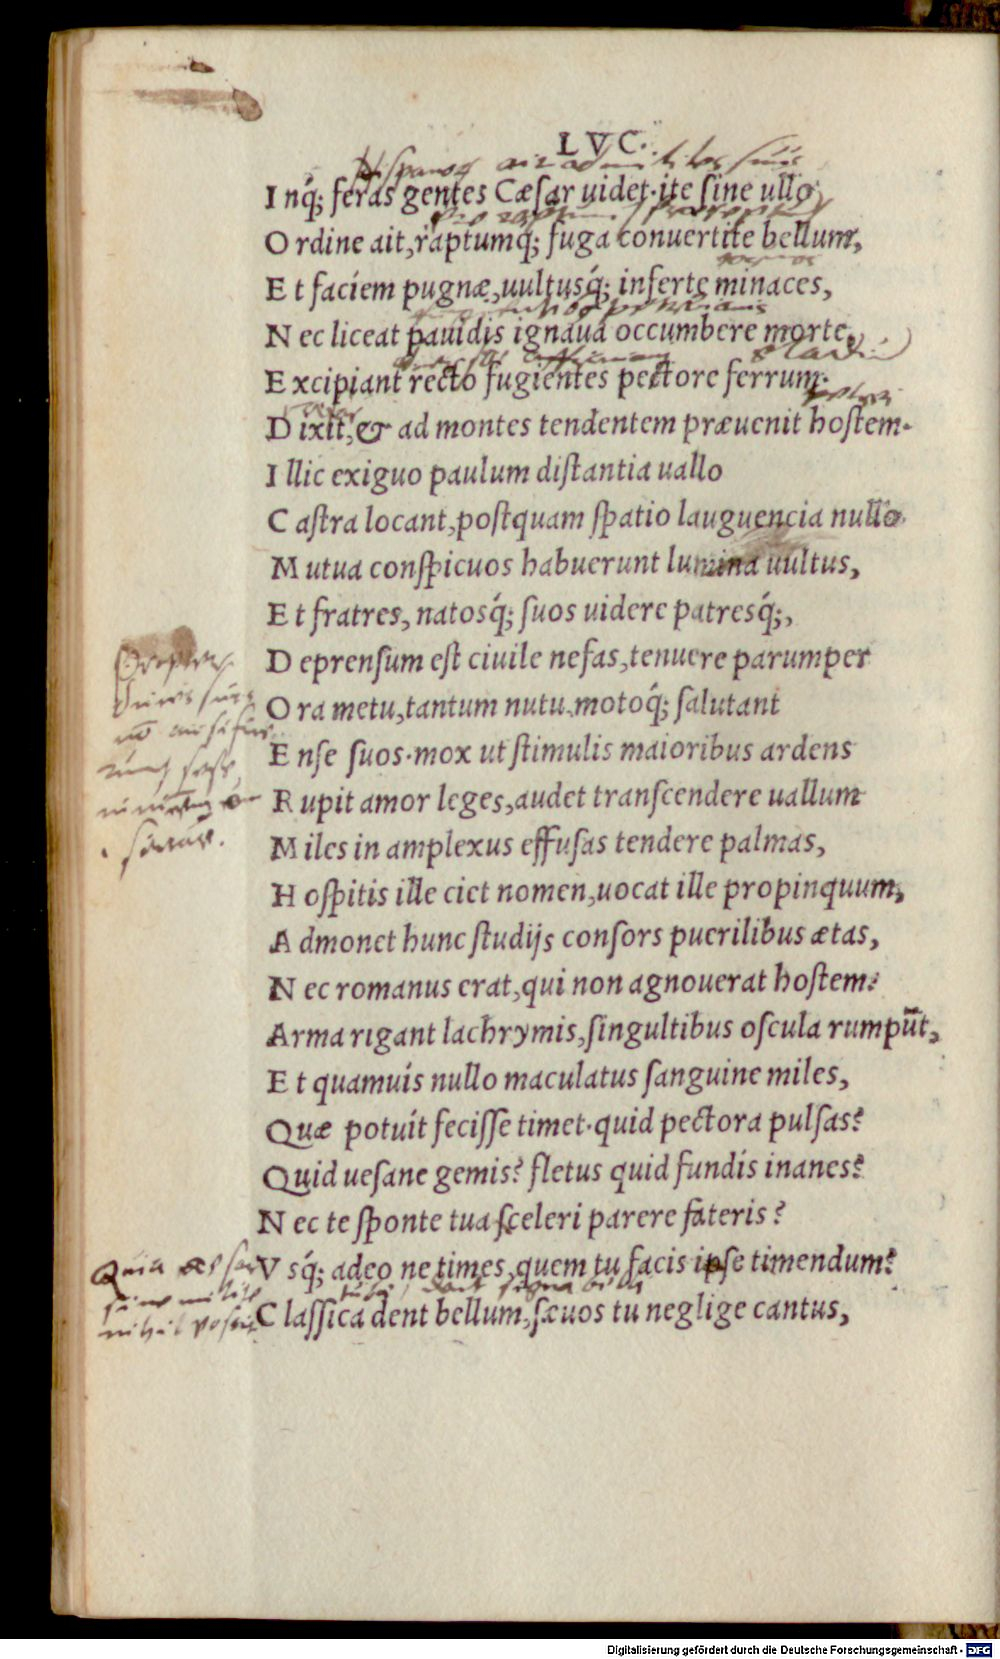 LVC.
Inq́; feras gentes Cæſar uidet·ite ſine ullo
Ordine ait, raptumq́; fuga conuertite bellum,
Et faciem pugnæ, uultusq́; inferte minaces,
Nec liceat pauidis ignaua occumbere morte,
Excipiant recto fugientes pectore ferrum.
Dixit, & ad montes tendentem præuenit hoſtem.
Illic exiguo paulum diſtantia uallo
Caſtra locant, poſtquam ſpatio lauguencia nullo
Mutua conſpicuos habuerunt lumina uultus,
Et fratres, natosq́; ſuos uidere patresq́;,
Deprenſum eſt ciuile nefas, tenuere parumper
Ora metu, tantum nutu, motoq́; ſalutant
Enſe ſuos·mox ut ſtimulis maioribus ardens
Rupit amor leges, audet tranſcendere uallum
Miles in amplexus effuſas tendere palmas,
Hoſpitis ille ciet nomen, uocat ille propinquum,
Admonet hunc ſtudijs conſors puerilibus ætas,
Nec romanus erat, qui non agnouerat hoſtem:
Arma rigant lachrymis, ſingultibus oſcula rumpūt,
Et quamuis nullo maculatus ſanguine miles,
Quæ potuit feciſſe timet·quid pectora pulſas?
Quid ueſane gemis? fletus quid fundis inanes?
Nec te ſponte tua ſceleri parere fateris?
Quia
Vsq́; adeo ne times, quem tu facis ipſe timendum?
nihil
Claſſica dent bellum, ſæuos tu neglige cantus,
Digitalisierung gefördert durch die Deutsche Forschungsgemeinschaft - DFG